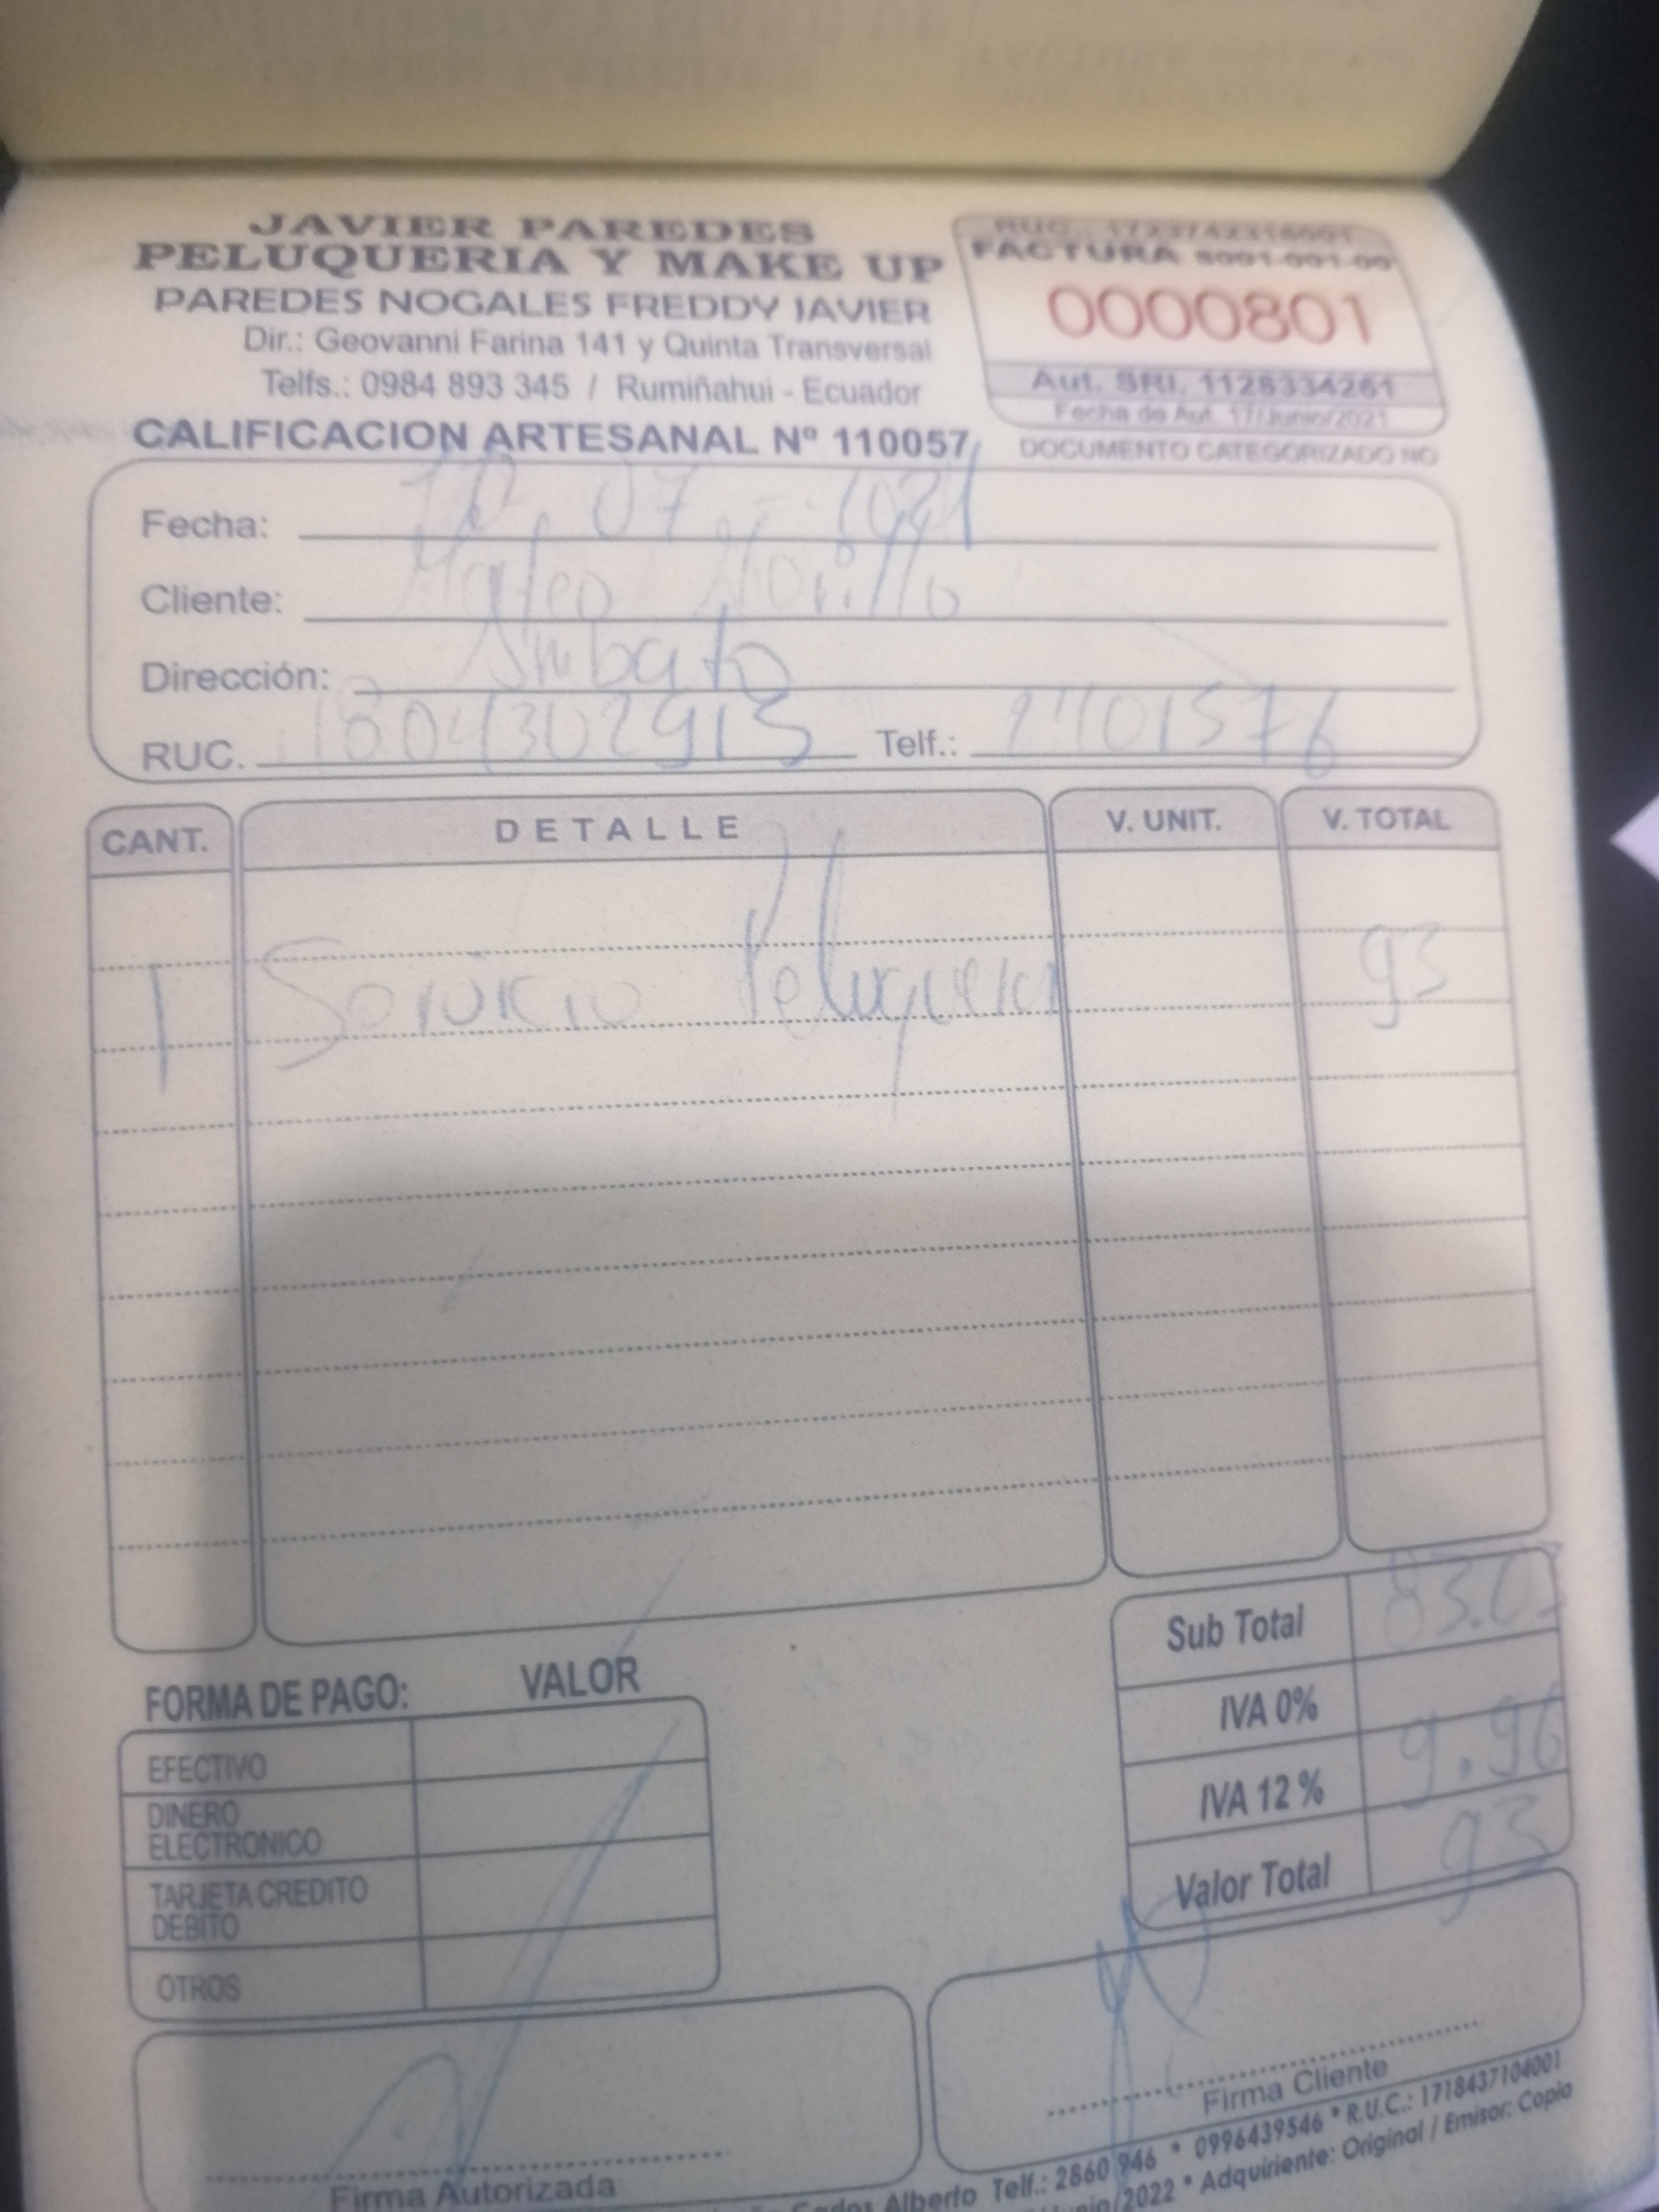 JAVIER PAREDES
PELUQUERIA Y MAKE UP
PAREDES NOGALES FREDDY JAVIER
Dir.: Geovanni Farina 141 y Quinta Transversal
Telfs.: 0984 893 345 / Rumiñahui - Ecuador
CALIFICACION ARTESANAL Nº 110057
RUC.: 1723742316001
FACTURA S001-001-00
0000801
Aut. SRI. 1128334261
Fecha de Aut. 17/Junio/2021
DOCUMENTO CATEGORIZADO NO
Fecha: 07 - 2021
Cliente: Mateo
Dirección: Ambato
RUC. 1804302913 Telf.:
CANT. DETALLE V. UNIT. V. TOTAL
1 Servicio Peluqueria 93
Sub Total 83.03
IVA 0%
IVA 12 % 9.96
Valor Total 93
FORMA DE PAGO: VALOR
EFECTIVO
DINERO
ELECTRONICO
TARJETA CREDITO
DEBITO
OTROS
Firma Autorizada
Firma Cliente
Carlos Alberto Telf.: 2860 946 * 0996439546 * R.U.C.: 1718437104001
/Junio/2022 * Adquiriente: Original / Emisor: Copia